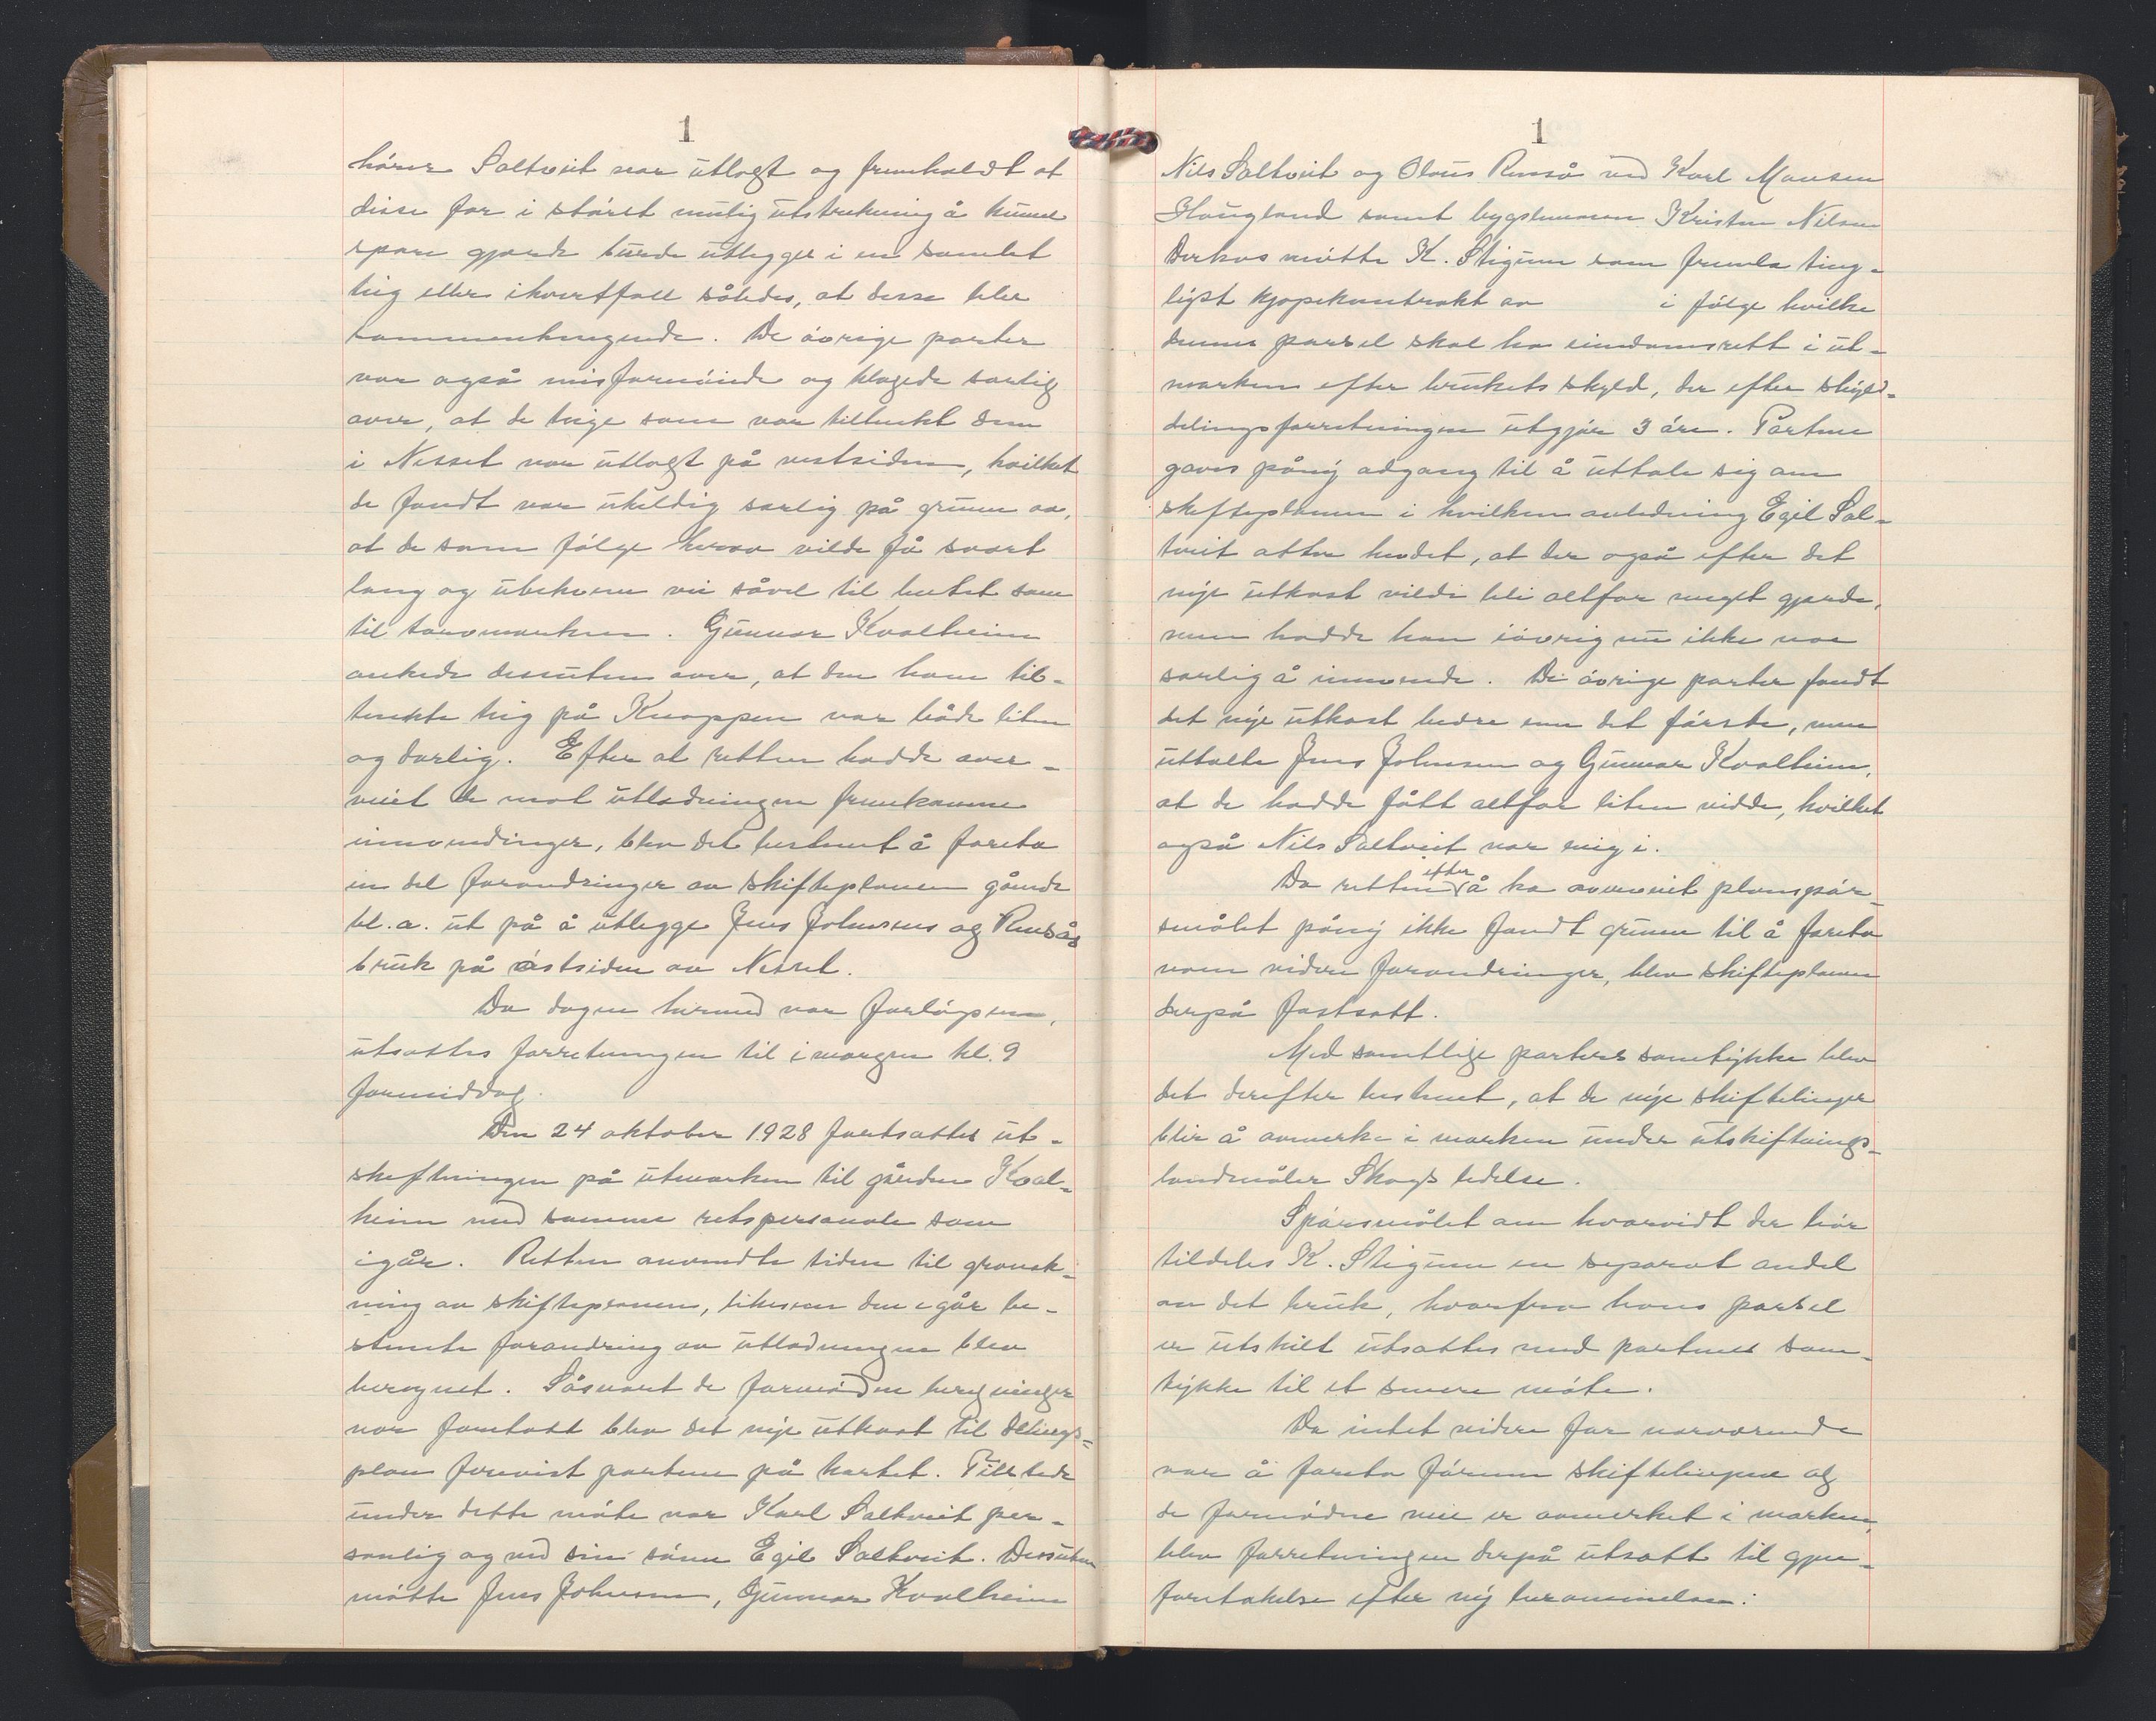 1
hörer Saltveit var utlagt og fremholdt at
disse for i størst mulig utstrekning å kunne
spare gjerde burde utlegges i en samlet
teig eller ihvertfall således, at disse blev
sammenhengende. De øvrige parter
var også misfornøiede og klagede særlig
over, at de teige som var tiltenkt dem
i Nesset var utlagt på vestsiden, hvilket
de fandt var uheldig særlig på grunn av,
at de som følge herav vilde få svært
lang og ubekvem vei såvel til beitet som
til torvmarken. Gunnar Kvalheim
ankede dessuten over, at den ham til-
tenkte teig på Knappen var både liten
og dårlig. Efter at retten hadde over-
veiet de mot utlodningen fremkomne
innvendinger, blev det bestemt å foreta
en del forandringer av skifteplanen gående
bl.a. ut på å utlegge Jens Johnsens og Rensås
bruk på østsiden av Nesset.
Da dagen hermed var forløpen,
utsattes forretningen til imorgen kl. 9
formiddag.
Den 24 oktober 1928 fortsattes ut-
skiftningen på utmarken til gården Kval-
heim med samme retspersonale som
igår. Retten anvendte tiden til gransk-
ning av skifteplanen, likesom den igår be-
stemte forandring av utlodningen blev
beregnet. Såsnart de fornødne beregninger
var foretatt blev det nye utkast til delings-
plan forevist partene på kartet. Tilstede
under dette møte var Karl Saltveit per-
sonlig og ved sin sønn Egil Saltveit. Dessuten
møtte Jens Johnsen, Gunnar Kvalheim
1
Nils Saltveit og Olaus Renså ved Karl Monsen
Haugland samt bygslemann Kristen Nilsen
Derhos møtte K. Stigum som fremla ting-
lyst kjøpekontrakt av i følge hvilke
denne parsel skal ha eiendomsrett i ut-
marken efter brukets skyld, der efter skyld-
delingsforretningen utgjør 3 øre. Partene
gaves påny adgang til å uttale sig om
skifteplanen i hvilken anledning Egil Sal-
tveit atter hevdet, at der også efter det
nye utkast vilde bli altfor meget gjerde,
men hadde han iøvrig nu ikke noe
særlig å innvende. De øvrige parter fandt
det nye utkast bedre enn det første, men
uttalte Jens Johnsen og Gunnar Kvalheim,
at de hadde fått altfor liten vidde, hvilket
også Nils Saltveit var enig i.
Da retten efter å ha overveiet planspør-
smålet påny ikke fandt grunn til å foreta
noen videre forandringer, blev skifteplanen
derpå fastsatt.
Med samtlige parters samtykke blev
det derefter bestemt, at de nye skiftelinjer
blir å avmerke i marken under utskiftnings-
landmåler Skogs ledelse.
Spørsmålet om hvorvidt der bør
tildeles K. Stigum en separat andel
av det bruk, hvorfra hans parsel
er utskilt utsattes med partenes sam-
tykke til et senere møte.
Da intet videre for nærværende
var å foreta førenn skiftelinjene og
de fornødne veie er avmerket i marken,
blev forretningen derpå utsatt til gjen-
foretakelse efter ny berammelse.